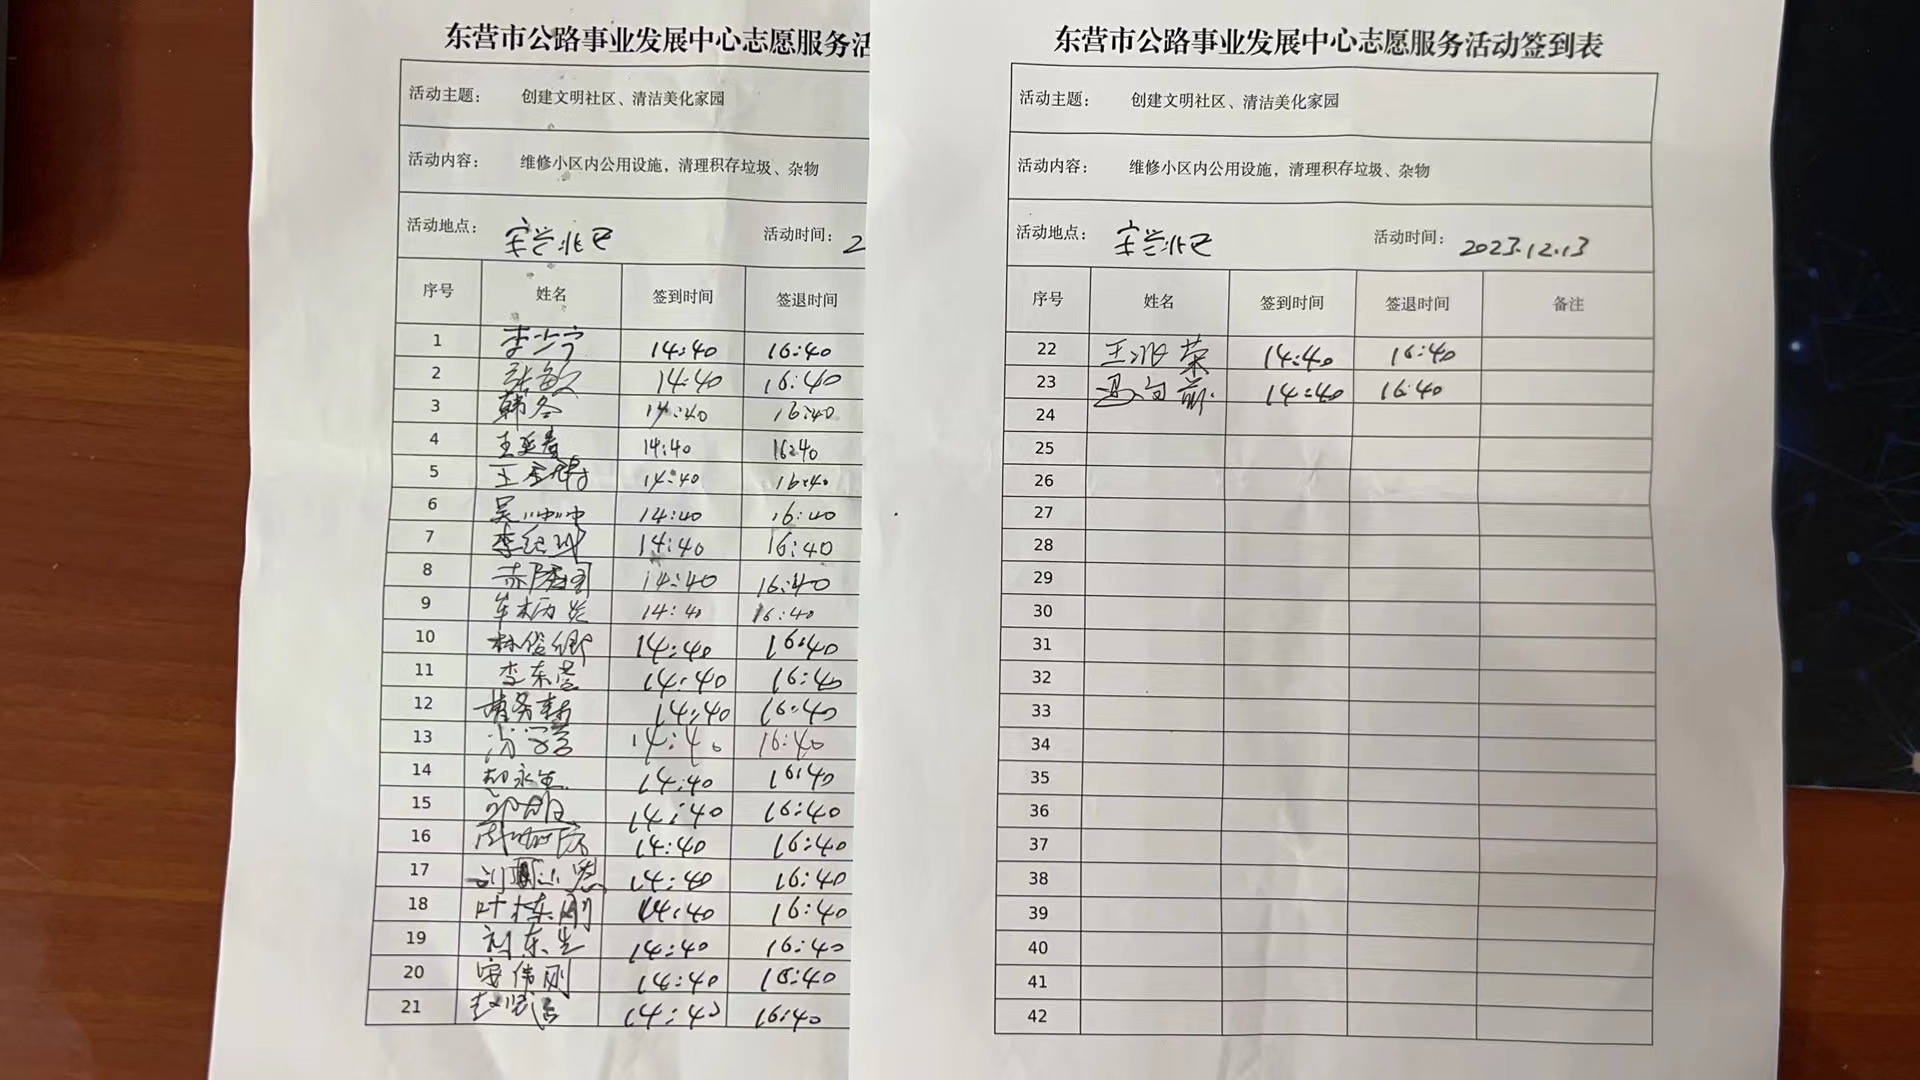 东营市公路事业发展中心志愿服务活
活动主题： 创建文明社区、清洁美化家园
活动内容： 维修小区内公用设施，清理积存垃圾、杂物
活动地点： 活动时间： 2
序号 姓名 签到时间 签退时间
1 李少宁 14:40 16:40
2 张敏 14:40 16:40
3 韩冬 14:40 16:40
4 王延春 14:40 16:40
5 14:40 16:40
6 14:40 16:40
7 14:40 16:40
8 14:40 16:40
9 14:40 16:40
10 林俊卿 14:40 16:40
11 李东营 14:40 16:40
12 14:40 16:40
13 14:40 16:40
14 14:40 16:40
15 14:40 16:40
16 14:40 16:40
17 14:40 16:40
18 叶栋刚 14:40 16:40
19 刘东生 14:40 16:40
20 14:40 16:40
21 14:40 16:40
东营市公路事业发展中心志愿服务活动签到表
活动主题： 创建文明社区、清洁美化家园
活动内容： 维修小区内公用设施，清理积存垃圾、杂物
活动地点： 活动时间： 2023.12.13
序号 姓名 签到时间 签退时间 备注
22 14:40 16:40
23 冯向前 14:40 16:40
24
25
26
27
28
29
30
31
32
33
34
35
36
37
38
39
40
41
42